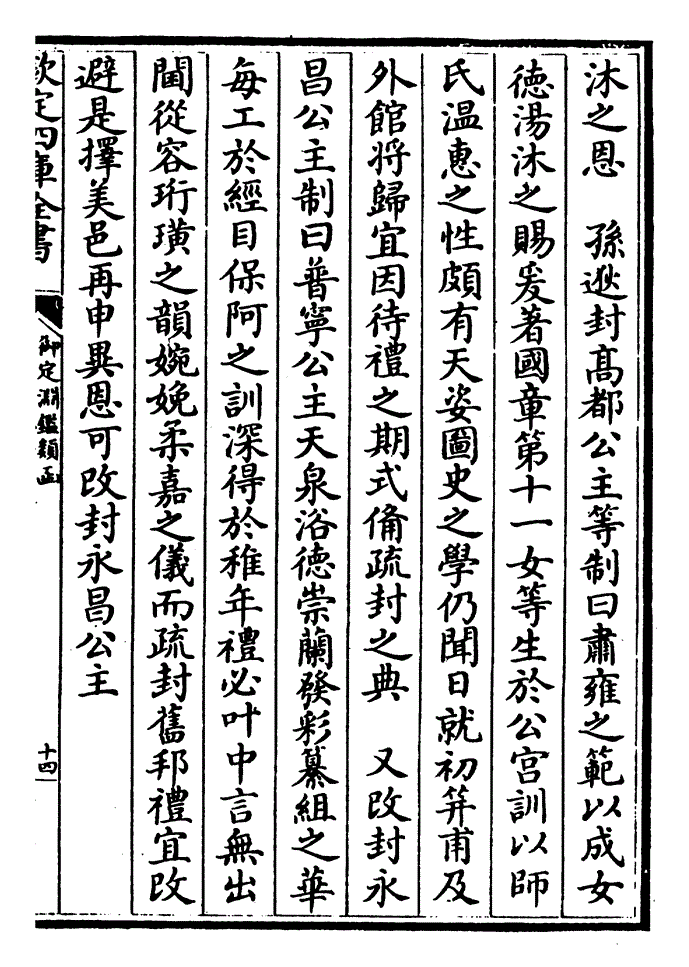 沐之恩　孫逖封髙都公主等制曰肅雍之範以成女
徳湯沐之賜爰著國章第十一女等生於公宫訓以師
氏温惠之性頗有天姿圖史之學仍聞日就初笄甫及
外館將歸宜因待禮之期式備疏封之典　又改封永
昌公主制曰普寧公主天泉浴德崇蘭發彩纂組之華
每工於經目保阿之訓深得於稚年禮必叶中言無出
閫從容珩璜之韻婉娩柔嘉之儀而疏封舊邦禮宜改
避是擇美邑再申異恩可改封永昌公主
欽定四庫全書
御定淵鑑類函
十四